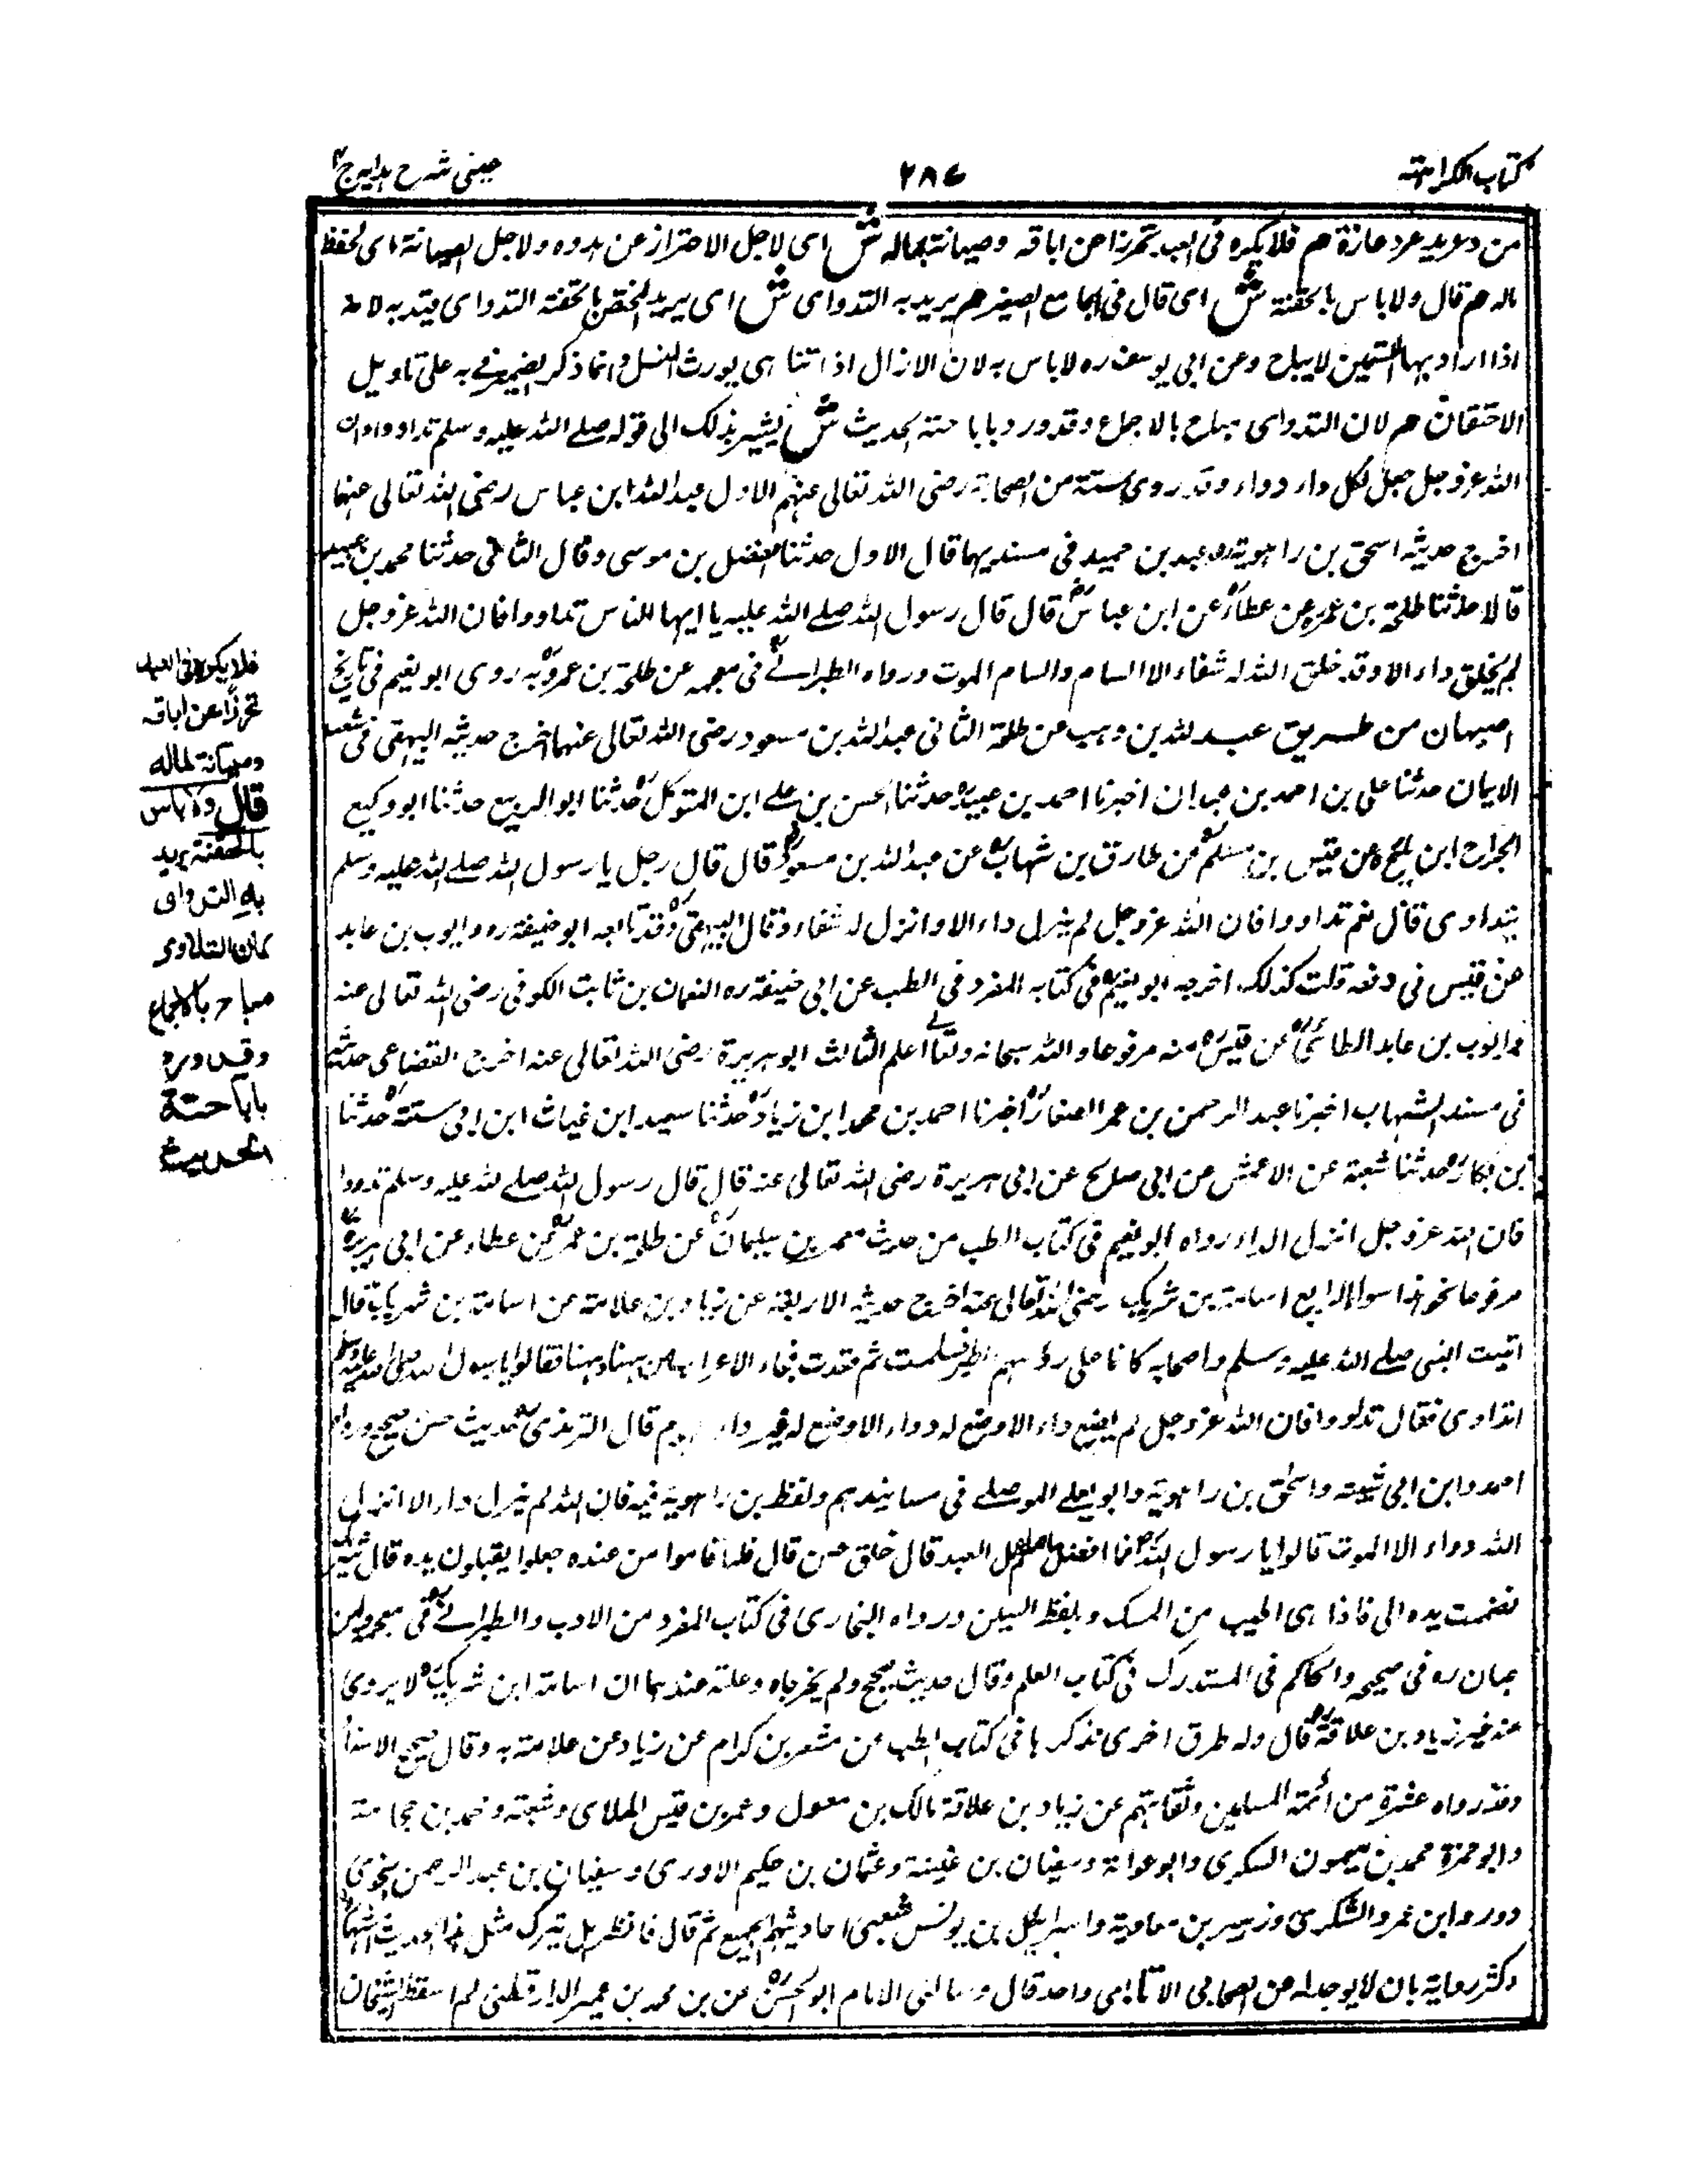 كتاب الكراهية
٢٨٤
عيني شرح هدايه ج ٤
من دعر يدعر دعارة م فلا يكره فى العبد تحرزا عن اباقه وصيانة لماله ش اى لاجل الاحتراز عن هروه ولاجل الصيانة اى لحفظ
ماله م قال ولا باس بالحقنة ش اى قال فى الجامع الصغير م يريد به التداوى ش اى يريد المحتقن بالحقنة التداوى قيد به لانه
اذا اراد بها التسمين لا يباح وعن ابى يوسف ره لا باس به لان الهزال اذا تنا هى يورث السل وانما ذكر الضمير فى به على تاويل
الاحتقان م لان التداوى مباح بالاجماع وقد ورد باباحته الحديث ش يشير بذلك الى قوله صلى الله عليه وسلم تداووا فان
الله عز وجل جعل لكل داء دواء وقد روى ستة من الصحابة رضى الله تعالى عنهم الاول عبد الله ابن عباس رضى الله تعالى عنهما
اخرج حديثه اسحق بن راهويه وعبد بن حميد فى مسنديهما قال الاول حدثنا الفضل بن موسى وقال الثانى حدثنا محمد بن عبيد
قالا حدثنا طلحة بن عمر عن عطاء عن ابن عباس قال قال رسول الله صلى الله عليه يا ايها الناس تداووا فان الله عز وجل
لم يخلق داء الا وقد خلق الله له شفاء الا السام والسام الموت ورواه الطبرانى فى معجمه عن طلحة بن عمرو به روى ابو نعيم فى تاريخ
اصبهان من طريق عبد الله بن وهب عن طلحة الثانى عبد الله بن مسعود رضى الله تعالى عنهما اخرج حديثه البيهقى فى شعب
الايمان حدثنا على بن احمد بن عبدان اخبرنا احمد بن عبيد حدثنا الحسن بن على ابن المتوكل حدثنا ابو الربيع حدثنا ابو وكيع
الجراح ابن مليح عن قيس بن مسلم عن طارق بن شهاب عن عبد الله بن مسعود قال قال رجل يا رسول الله صلى الله عليه وسلم
يتداوى قال نعم تداووا فان الله عز وجل لم ينزل داء الا وانزل له شفاء وقال البيهقى وقد تابعه ابو حنيفة ره وايوب بن عابد
عن قيس فى دفعه قلت كذلك اخرجه ابو نعيم فى كتابه المفرد فى الطب عن ابى حنيفة ره النعمان بن ثابت الكوفى رضى الله تعالى عنه
وايوب بن عابد الطائى عن قيس عنه مرفوعا والله سبحانه وتعالى اعلم الثالث ابو هريرة رضى الله تعالى عنه اخرج القضاعى حديثه
فى مسند الشهاب اخبرنا عبد الرحمن بن عمر الصفار اخبرنا احمد بن محمد ابن زياد حدثنا سعيد ابن غياث ابن ابى ستة حدثنا
بن بكار حدثنا شعبة عن الاعمش عن ابى صالح عن ابى هريرة رضى الله تعالى عنه قال قال رسول الله صلى الله عليه وسلم تداووا
فان الله عز وجل انزل الداء رواه ابو نعيم فى كتاب الطب من حديث معمر بن سليمان عن طلحة بن عمر عن عطاء عن ابى هريرة
مرفوعا نحو هذا سوا الرابع اسامة بن شريك رضى الله تعالى عنه اخرج حديثه الاربعة عن زياد بن علاقة عن اسامة بن شريك قال
اتيت النبى صلى الله عليه وسلم واصحابه كانما على رؤسهم الطير فسلمت ثم قعدت فجاء الاعراب من ههنا وههنا فقالوا يا رسول الله صلى الله عليه وسلم
انتداوى فقال تداووا فان الله عز وجل لم يضع داء الا وضع له دواء الا وضع له غير داء الهرم قال الترمذى حديث حسن صحيح ورواه
احمد وابن ابى شيبة واسحق بن راهويه وابو يعلى الموصلى فى مسانيدهم ولفظ بن راهويه فيه فان الله لم ينزل داء الا انزل
الله دواء الا الموت قالوا يا رسول الله فما افضل ما العبد قال خلق حسن قال فلما قاموا من عنده جعلوا يقبلون يده قال شريك
فضمت يده الى فاذا هى اطيب من المسك وبلفظ السنن ورواه البخارى فى كتاب المفرد من الادب والطبرانى فى معجمه وابن
حبان ره فى صحيحه والحاكم فى المستدرك فى كتاب العلم وقال حديث صحيح ولم يخرجاه وعلته عندهما ان اسامة ابن شريك لا يروى
عنه غير زياد بن علاقة قال وله طرق اخرى نذكرها فى كتاب الطب عن مسعر بن كدام عن زياد عن علاقة به وقال صحيح الاسناد
وقد رواه عشرة من ائمة المسلمين وثقاتهم عن زياد بن علاقة مالك بن مغول وعمرو بن قيس الملائى وشعبة ومحمد بن جحادة
وابو حمزة محمد بن ميمون السكرى وابو عوانة وسفيان بن عيينة وعثمان بن حكيم الاودى وسفيان بن عبد الرحمن نحوى
وورواء ابن عمرو الشكرى وزهير بن معاوية واسرائيل بن يونس شعبى احاديثهم الجميع ثم قال فانظر هل يترك مثل هذا الحديث اشتهار
وكثر رواية بان لا يوجد له عن الصحابى الا تابعى واحد قال وسالنى الامام ابو الحسن عن بن محمد بن عمير الدارقطنى لم اسقط الشيخان
فلا يكره فى العبد
تحرزا عن اباقه
وصيانة لماله
قال ولا باس
بالحقنة يريد
به التداوى
لان التداوى
مباح بالاجماع
وقد ورد
باباحته
الحديث